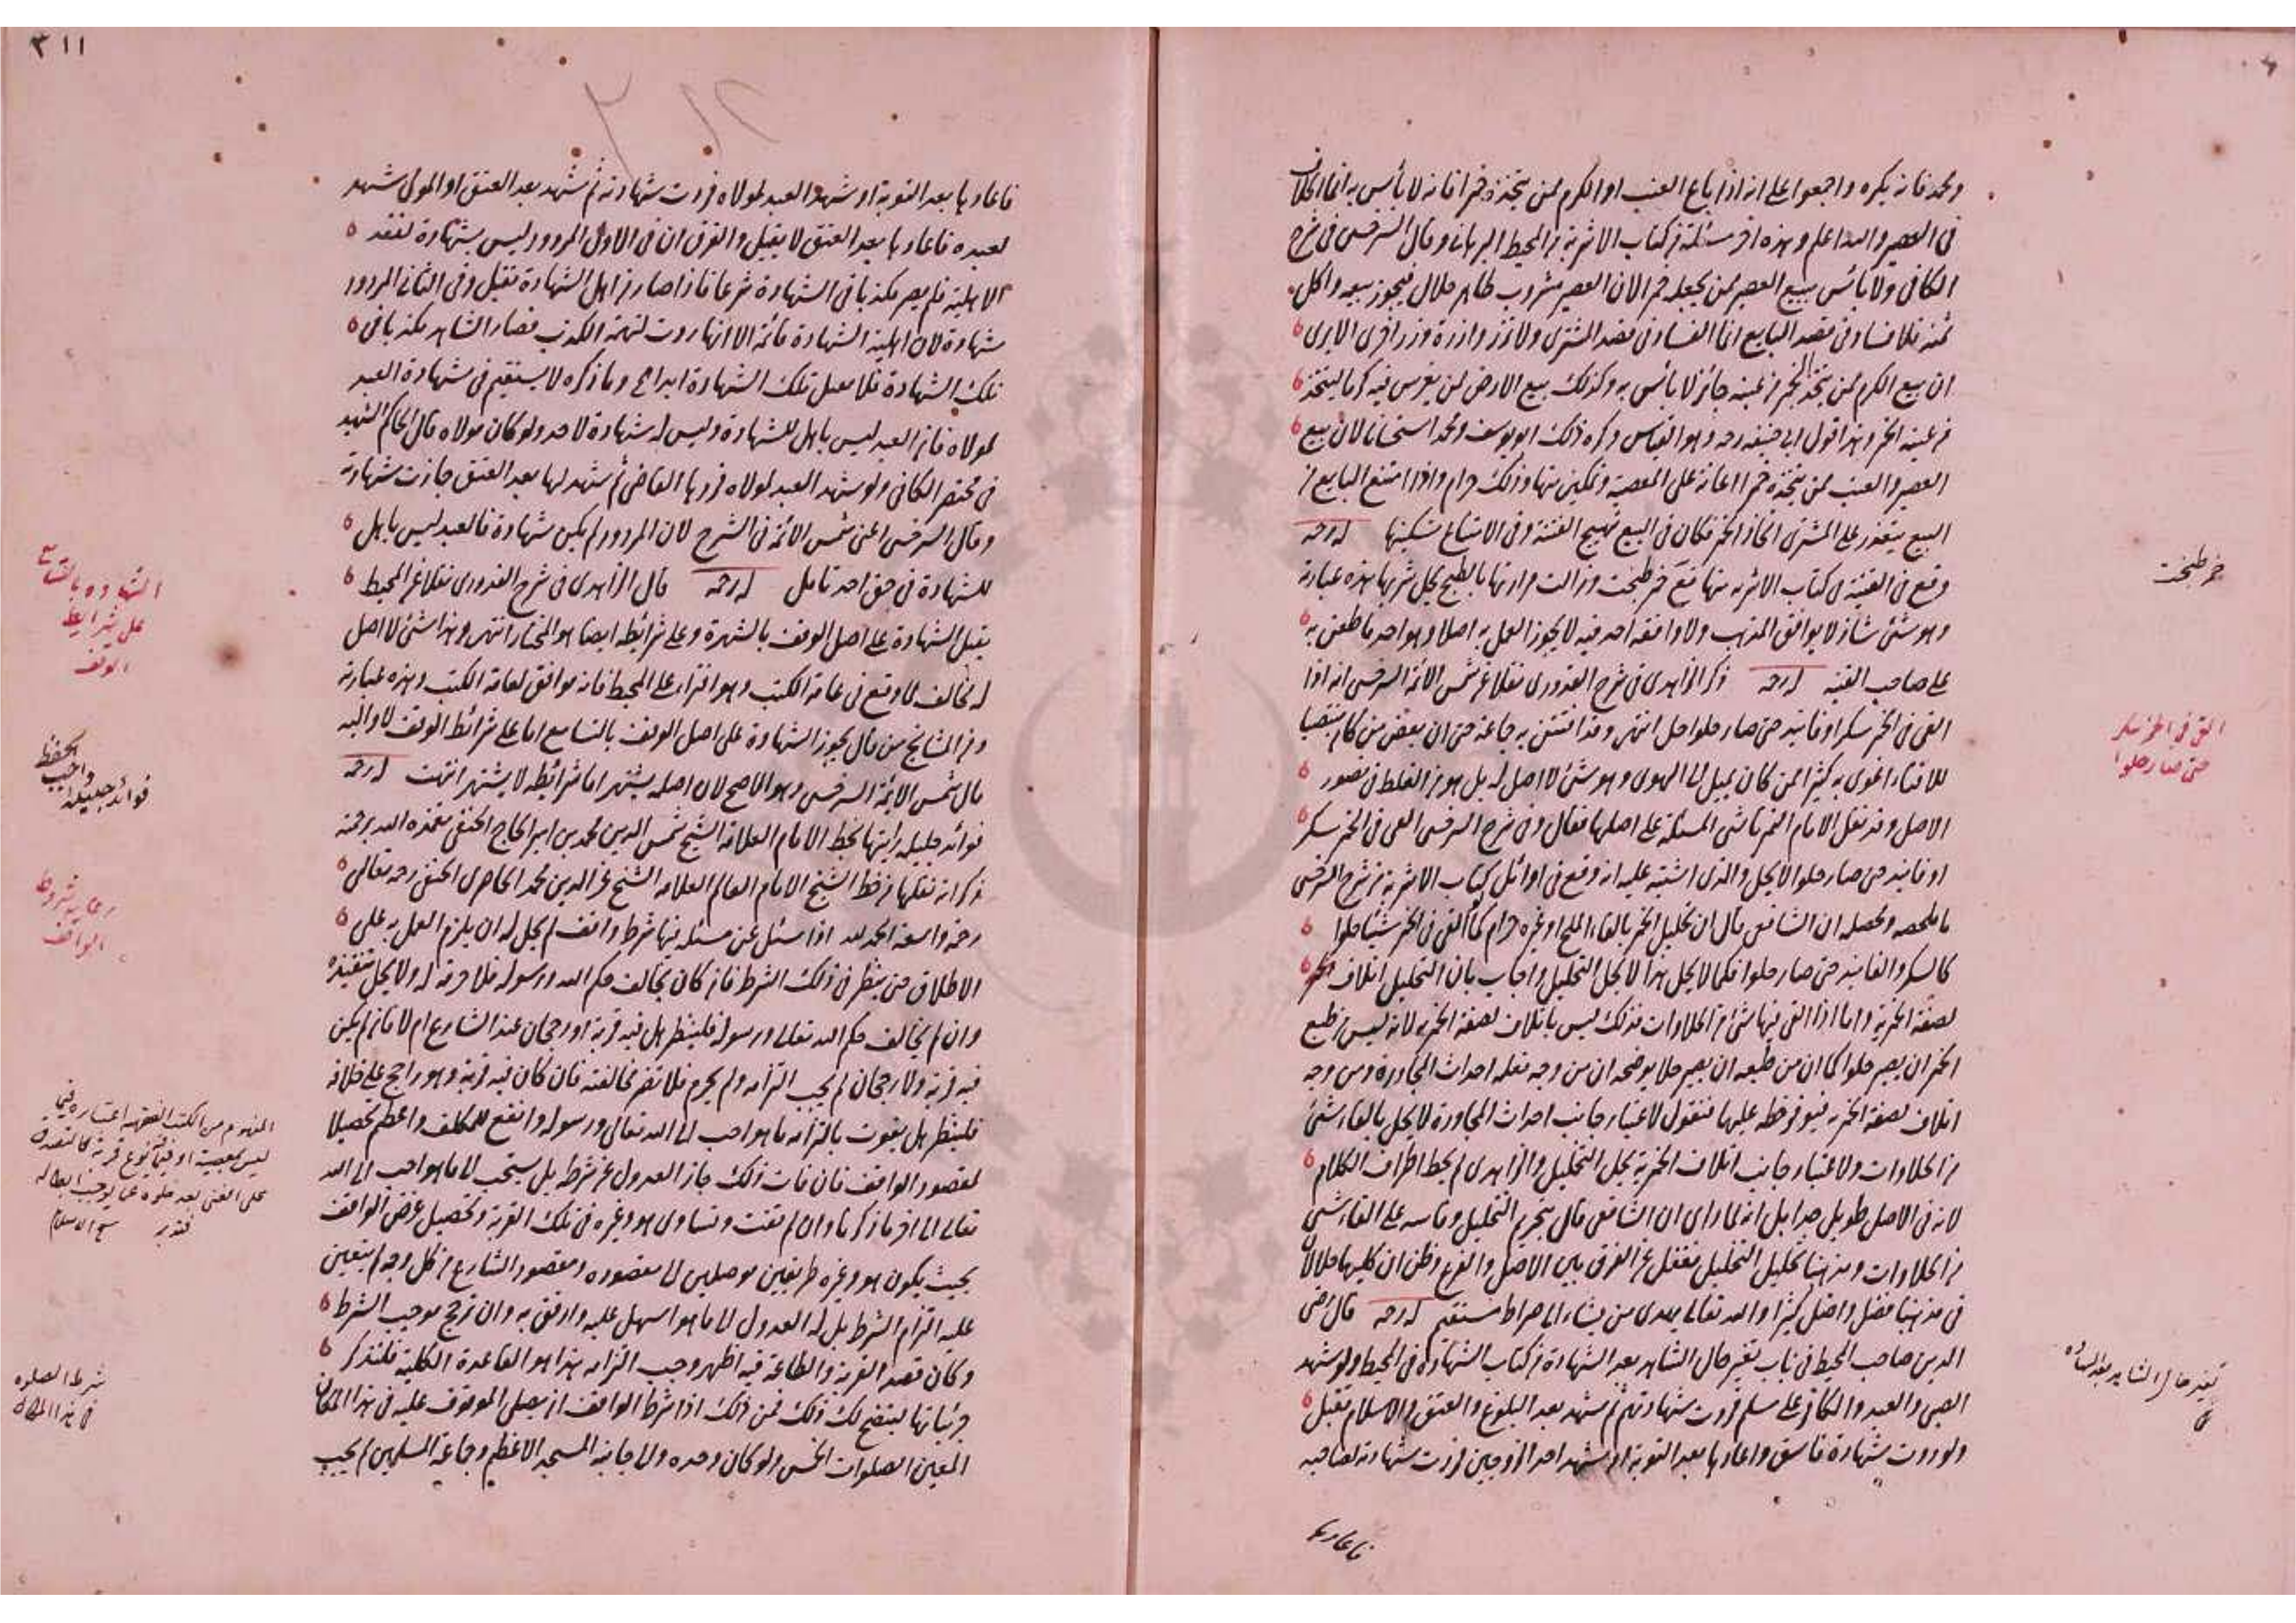 ومحمد فانه يكره واجمعوا على انه اذا باع العنب او الكرم ممن يتخذه خمرا فانه لا بأس به انما الخلاف
في العصير والله اعلم وهذه اخر مسئلة من كتاب الاشربة من المحيط البرهاني وقال السرخسي في شرح
الكافي ولا بأس ببيع العصير ممن يجعله خمرا لان العصير مشروب طاهر حلال فيجوز بيعه واكل
ثمنه فلا فساد في قصد البايع انما الفساد في قصد المشتري ولا تزر وازرة وزر اخرى الا يرى
ان بيع الكرم ممن يتخذ الخمر من عنبه جائز لا بأس به وكذلك بيع الارض لمن يغرس فيه كرما ليتخذ
من عنبه الخمر وهذا قول ابي حنيفة رحه وهو القياس وكره ذلك ابو يوسف ومحمد استحسانا لان بيع
العصير والعنب ممن يتخذه خمرا اعانة على المعصية وتمكين منها وذلك حرام واذا امتنع البايع من
البيع يتعذر على المشتري اتخاذ الخمر فكان في البيع تهييج الفتنة وفي الامتناع تسكينها له رحه
وقع في القنية في كتاب الاشربه منها خمر طبخت وزالت مرارتها بالطبخ يحل شربها هذه عبارته
وهو شئ شاذ لا يوافق المذهب ولا وافقه احد فيه لا يجوز العمل به اصلا وهو احد ما طعن به
على صاحب القنيه له رحه ذكر الزاهدي في شرح القدوري نقلا عن شمس الائمة السرخسي انه اذا
القى في الخمر سكرا وفانيد حتى صار حلوا حل انتهى وقد افتتن به جماعة حتى ان بعض من كان منتصبا
للافتاء اغوى به كثيرا ممن كان يميل الى الهوى وهو شئ لا اصل له بل هو من الغلط في تصور
الاصل وقد نقل الامام التمرتاشي المسئلة على اصلها فقال وفي شرح السرخسي القى في الخمر سكر
او فانيد حتى صار حلوا لا يحل والذي اشتبه عليه انه وقع في اوائل كتاب الاشربة من شرح السرخسي
ما ملخصه ومحصله ان الشافعي قال ان تخليل الخمر بالقاء الملح او غيره حرام كما القى في الخمر شيئا حلوا
كالسكر والفانيد حتى صار حلوا فكما لا يحل هذا لا يحل التخليل واجاب بان التخليل اتلاف الخمر
لصفة الخمرية واما اذا القى فيها شئ من الحلاوات فذلك ليس باتلاف لصفة الخمريه لانه ليس من طبع
الخمر ان يصير حلوا كما ان من طبعه ان يصير خلا يوضحه ان من وجه فعله احداث المجاورة ومن وجه
اتلاف لصفة الخمريه فيوفر حظه عليها فنقول لاعتبار جانب احداث المجاورة لا يحل بالقاء شئ
من الحلاوات ولاعتبار جانب اتلاف الخمرية يحل التخليل والزاهدي لم يحط اطراف الكلام
لانه في الاصل طويل جدا بل انه لما راى ان الشافعي قال بتحريم التخليل وقاسه على القاء شئ
من الحلاوات ومذهبنا تحليل التخليل فغفل عن الفرق بين الاصل والفرع وظن ان كليهما حلالان
في مذهبنا فضل واضل كثيرا والله تعالى يهدى من يشاء الى صراط مستقيم له رحه قال رضي
الدين صاحب المحيط في باب تغير حال الشاهد بعد الشهادة من كتاب الشهادة في المحيط ولو شهد
الصبي والعبد والكافر على مسلم فردت شهادتهم ثم شهد بعد البلوغ والعتق والاسلام تقبل
ولو ردت شهادة فاسق واعادها بعد التوبة او شهد احد الزوجين فردت شهادته لصاحبه
فاعادها
خمر طبخت
القى في الخمر سكر
حتى صار حلوا
تغير حال الشاهد بعد الشهادة
٣١١
فاعادها بعد التوبة او شهد العبد لمولاه فردت شهادته ثم شهد بعد العتق او المولى شهد
لعبده فاعادها بعد العتق لا يقبل والفرق ان في الاول المردود ليس بشهادة لفقد
الاهلية فلم يصر مكذبا في الشهادة شرعا فاذا صار من اهل الشهادة تقبل وفي الثاني المردود
شهادة لان اهلية الشهادة قائمة الا انها ردت لتهمة الكذب فصار الشاهد مكذبا في
تلك الشهادة فلا تقبل تلك الشهادة ابدا وما ذكره لا يستقيم في شهادة العبد
لمولاه فان العبد ليس باهل للشهادة وليس له شهادة لاحد ولو كان مولاه قال الحاكم الشهيد
في مختصر الكافي ولو شهد العبد لمولاه فردها القاضي ثم شهد لها بعد العتق جازت شهادته
وقال السرخسي اعنى شمس الائمة في الشرح لان المردود لم يكن شهادة فالعبد ليس باهل
للشهادة في حق احد تامل له رحه قال الزاهدي في شرح القدوري نقلا عن المحيط
يقبل الشهادة على اصل الوقف بالشهرة وعلى شرائطه ايضا هو المختار انتهى وهذا شئ لا اصل
له مخالف لما وقع في عامة الكتب وهو افتراء على المحيط فانه موافق لعامة الكتب وهذه عبارته
ومن المشايخ من قال يجوز الشهادة على اصل الوقف بالتسامع اما على شرائط الوقف لا واليه
مال شمس الائمة السرخسي وهو الاصح لان اصله يشتهر اما شرائطه لا يشتهر انتهت له رحه
فوائد جليله رايتها بخط الامام العلامة الشيخ شمس الدين محمد بن امير الحاج الحنفي تغمده الله برحمته
ذكر انه نقلها من خط الشيخ الامام العالم العلامه الشيخ عز الدين محمد الحاضري الحنفي رحه تعالى
رحمة واسعة الحمد لله اذا سئل عن مسئله فيها شرط واقف لم يحل له ان يلزم العمل به على
الاطلاق حتى ينظر في ذلك الشرط فان كان يخالف حكم الله ورسوله فلا حرمة له ولا يحل تنفيذه
وان لم يخالف حكم الله تعالى ورسوله فلينظر هل فيه قربة او رجحان عند الشارع ام لا فان لم يكن
فيه قربة ولا رجحان لم يجب التزامه ولم يحرم فلا تضر مخالفته فان كان فيه قربة وهو راجح على خلافه
فلينظر هل يفوت بالتزامه ما هو احب الى الله تعالى ورسوله وانفع للمكلف واعظم تحصيلا
لمقصود الواقف فان فات ذلك جاز العدول عن شرطه بل يستحب الى ما هو احب الى الله
تعالى الى اخر ما ذكرنا وان لم يفت وتساوى هو وغيره في تلك القربة وتحصيل غرض الواقف
بحيث يكون هو وغيره طريقين موصلين الى مقصوده ومقصود الشارع من كل وجه لم يتعين
عليه التزام الشرط بل له العدول الى ما هو اسهل عليه وارفق به وان ترجح موجب الشرط
وكان قصد القربة والطاعة فيه اظهر وجب التزامه هذا هو القاعدة الكلية فلنذكر
جزئياتها ليتضح لك ذلك فمن ذلك اذا شرط الواقف ان يصلى الموقوف عليه في هذا المكان
المعين الصلوات الخمس ولو كان وحده والى جانبه المسجد الاعظم وجماعة المسلمين لم يجب
الشهاده بالتسامع
على شرايط
الوقف
فوائد جليله
واجب
الحفظ
رعاية شروط
الواقف
المفهوم من الكتب الفقهيه اعتباره فيما
ليس بمعصية او فيه نوع قربة كالتصدق
على الغنى بعد خلوه عما يوجب ابطاله
شرط الصلوه
في هذا المكان